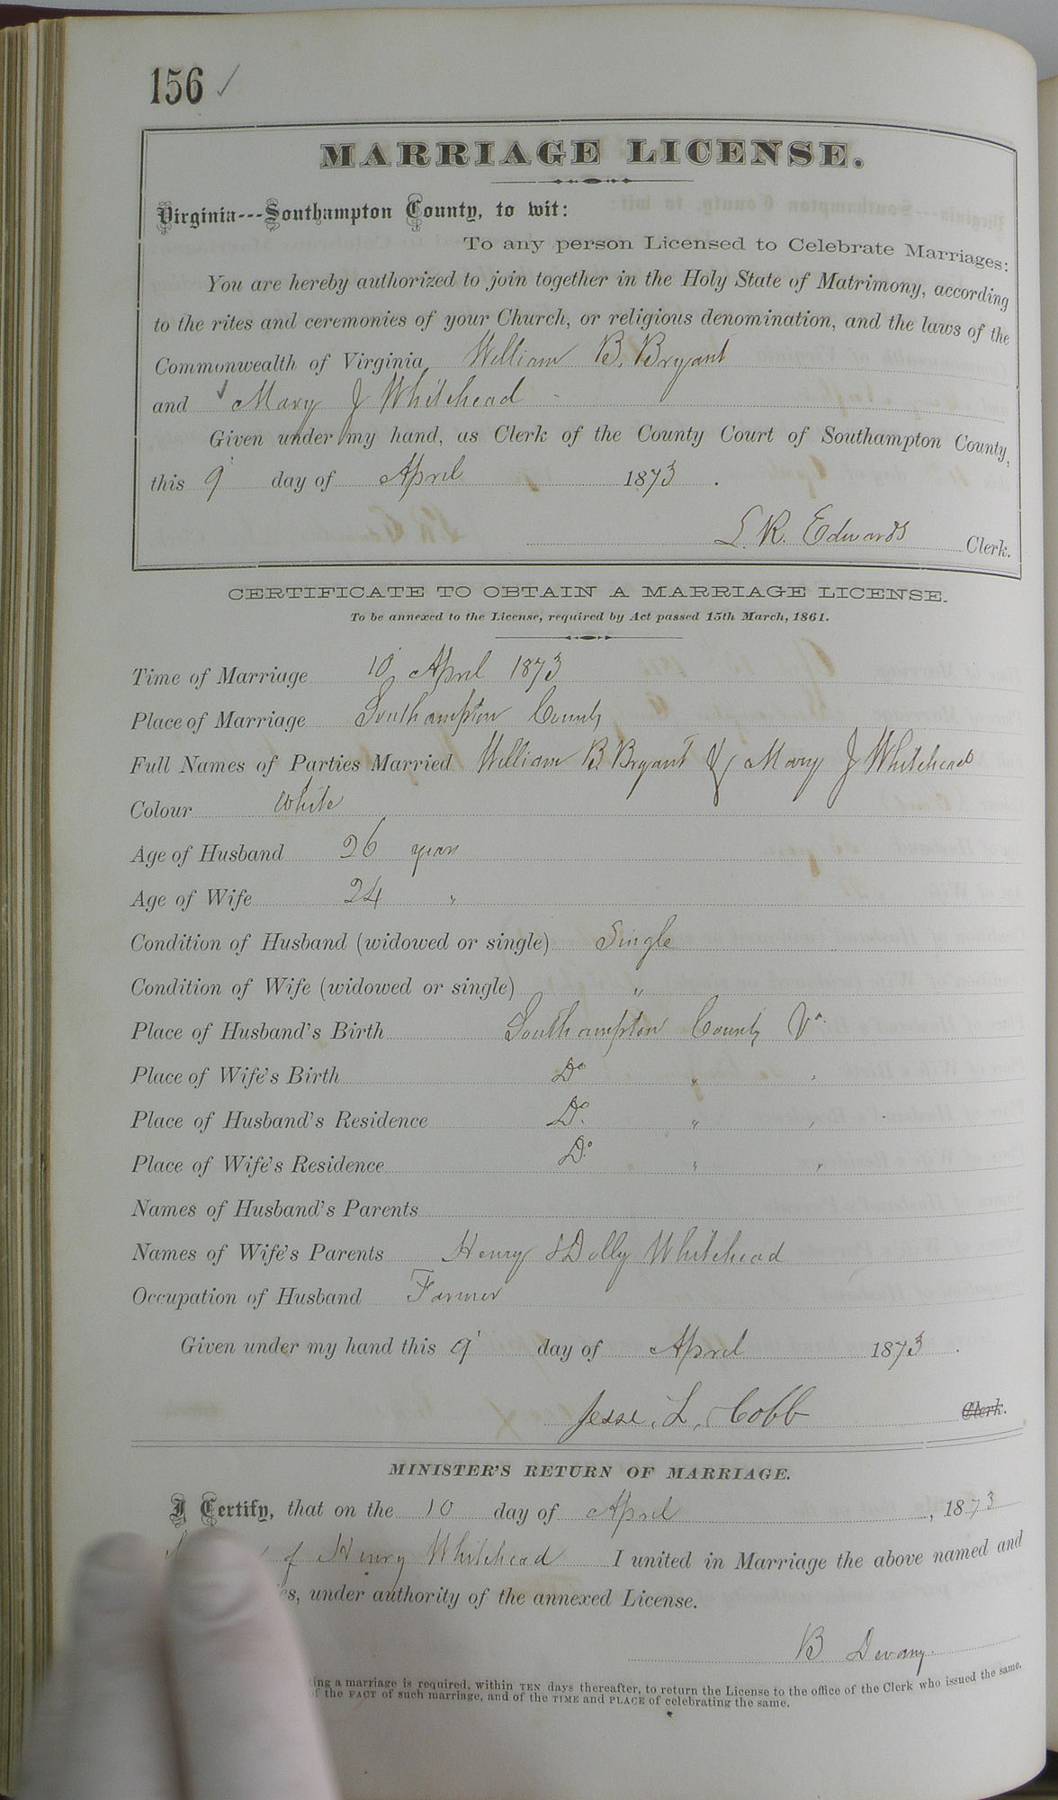 156 ✓
MARRIAGE LICENSE.
Virginia---Southampton County, to wit:
To any person Licensed to Celebrate Marriages:
You are hereby authorized to join together in the Holy State of Matrimony, according
to the rites and ceremonies of your Church, or religious denomination, and the laws of the
Commonwealth of Virginia, William B. Bryant
and Mary J Whitehead
Given under my hand, as Clerk of the County Court of Southampton County,
this 9 day of April 1873.
L. R. Edwards Clerk.
CERTIFICATE TO OBTAIN A MARRIAGE LICENSE.
To be annexed to the License, required by Act passed 15th March, 1861.
Time of Marriage 10 April 1873
Place of Marriage Southampton County
Full Names of Parties Married William B Bryant & Mary J Whitehead
Colour White
Age of Husband 26 years
Age of Wife 24 "
Condition of Husband (widowed or single) Single
Condition of Wife (widowed or single) "
Place of Husband's Birth Southampton County Va.
Place of Wife's Birth Do " "
Place of Husband's Residence Do. " "
Place of Wife's Residence Do " "
Names of Husband's Parents
Names of Wife's Parents Henry & Dolly Whitehead
Occupation of Husband Farmer
Given under my hand this 9 day of April 1873.
Jesse. L. Cobb Clerk.
MINISTER'S RETURN OF MARRIAGE.
I Certify, that on the 10 day of April, 1873
of Henry Whitehead I united in Marriage the above named and
es, under authority of the annexed License.
B Devany
ing a marriage is required, within TEN days thereafter, to return the License to the office of the Clerk who issued the same,
of the FACT of such marriage, and of the TIME and PLACE of celebrating the same.